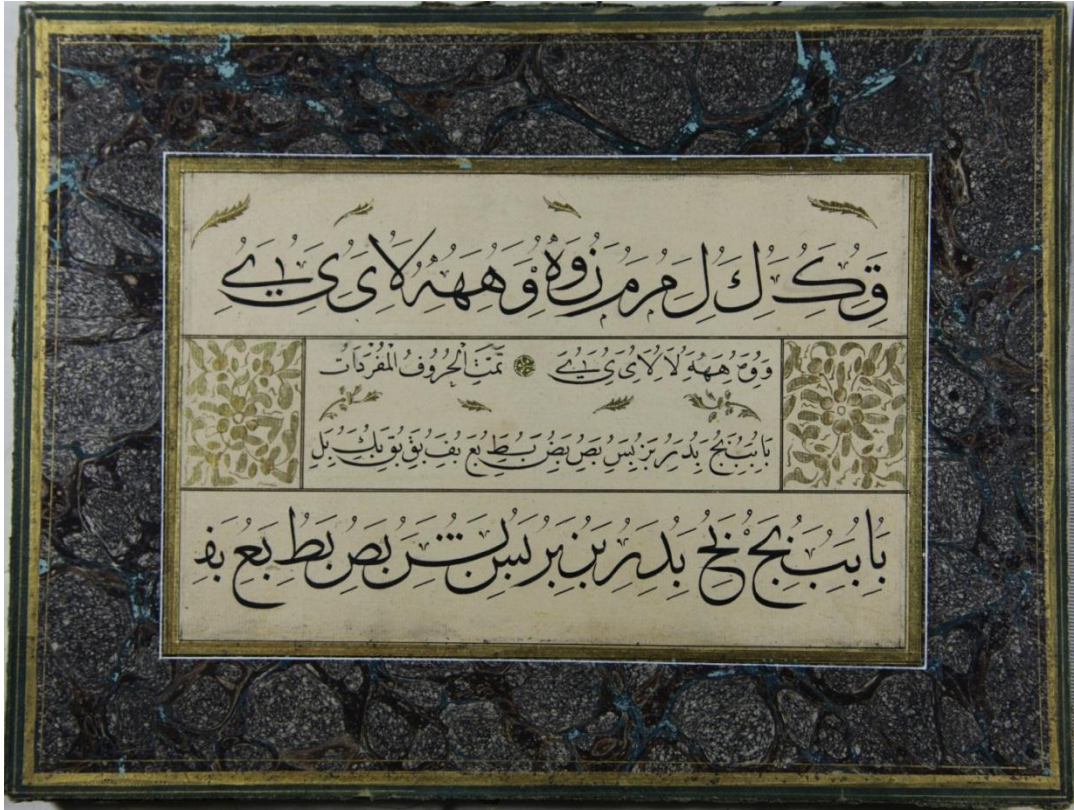 ق ك ك ل ل م م م ن و ه و ه ه ه لا ى ى ے
و و و ه ه ه لا لا ى ى ے تمت الحروف المفردات
با بب بج بد بر بز بس بص بض بط بع بف بق بك بل
با بب بج بج بد بر بن بر بس بس بص بط بع بف